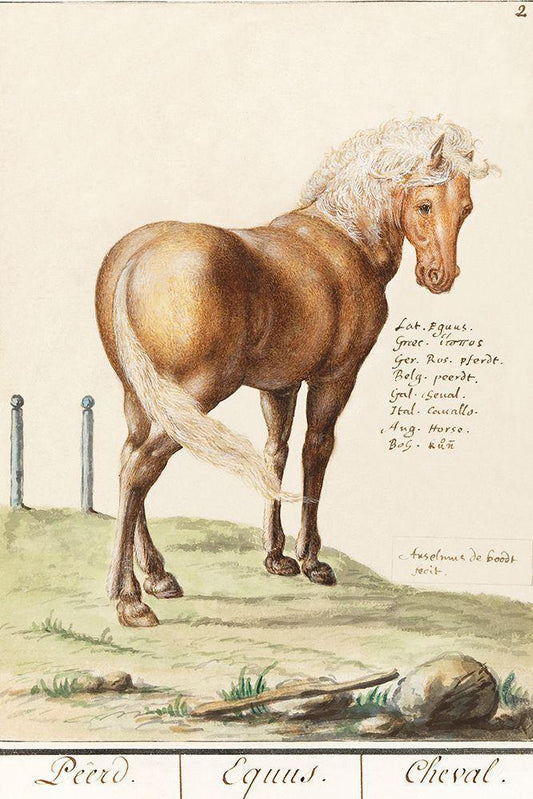 2
Lat. Equus.
Græc. ἵππος
Ger. Ros. pferdt.
Belg. peerdt.
Gal. Cheval.
Ital. Cauallo.
Ang. Horse.
Boh. kůň
Anselmus de boodt
fecit.
Péerd. Equus. Cheval.